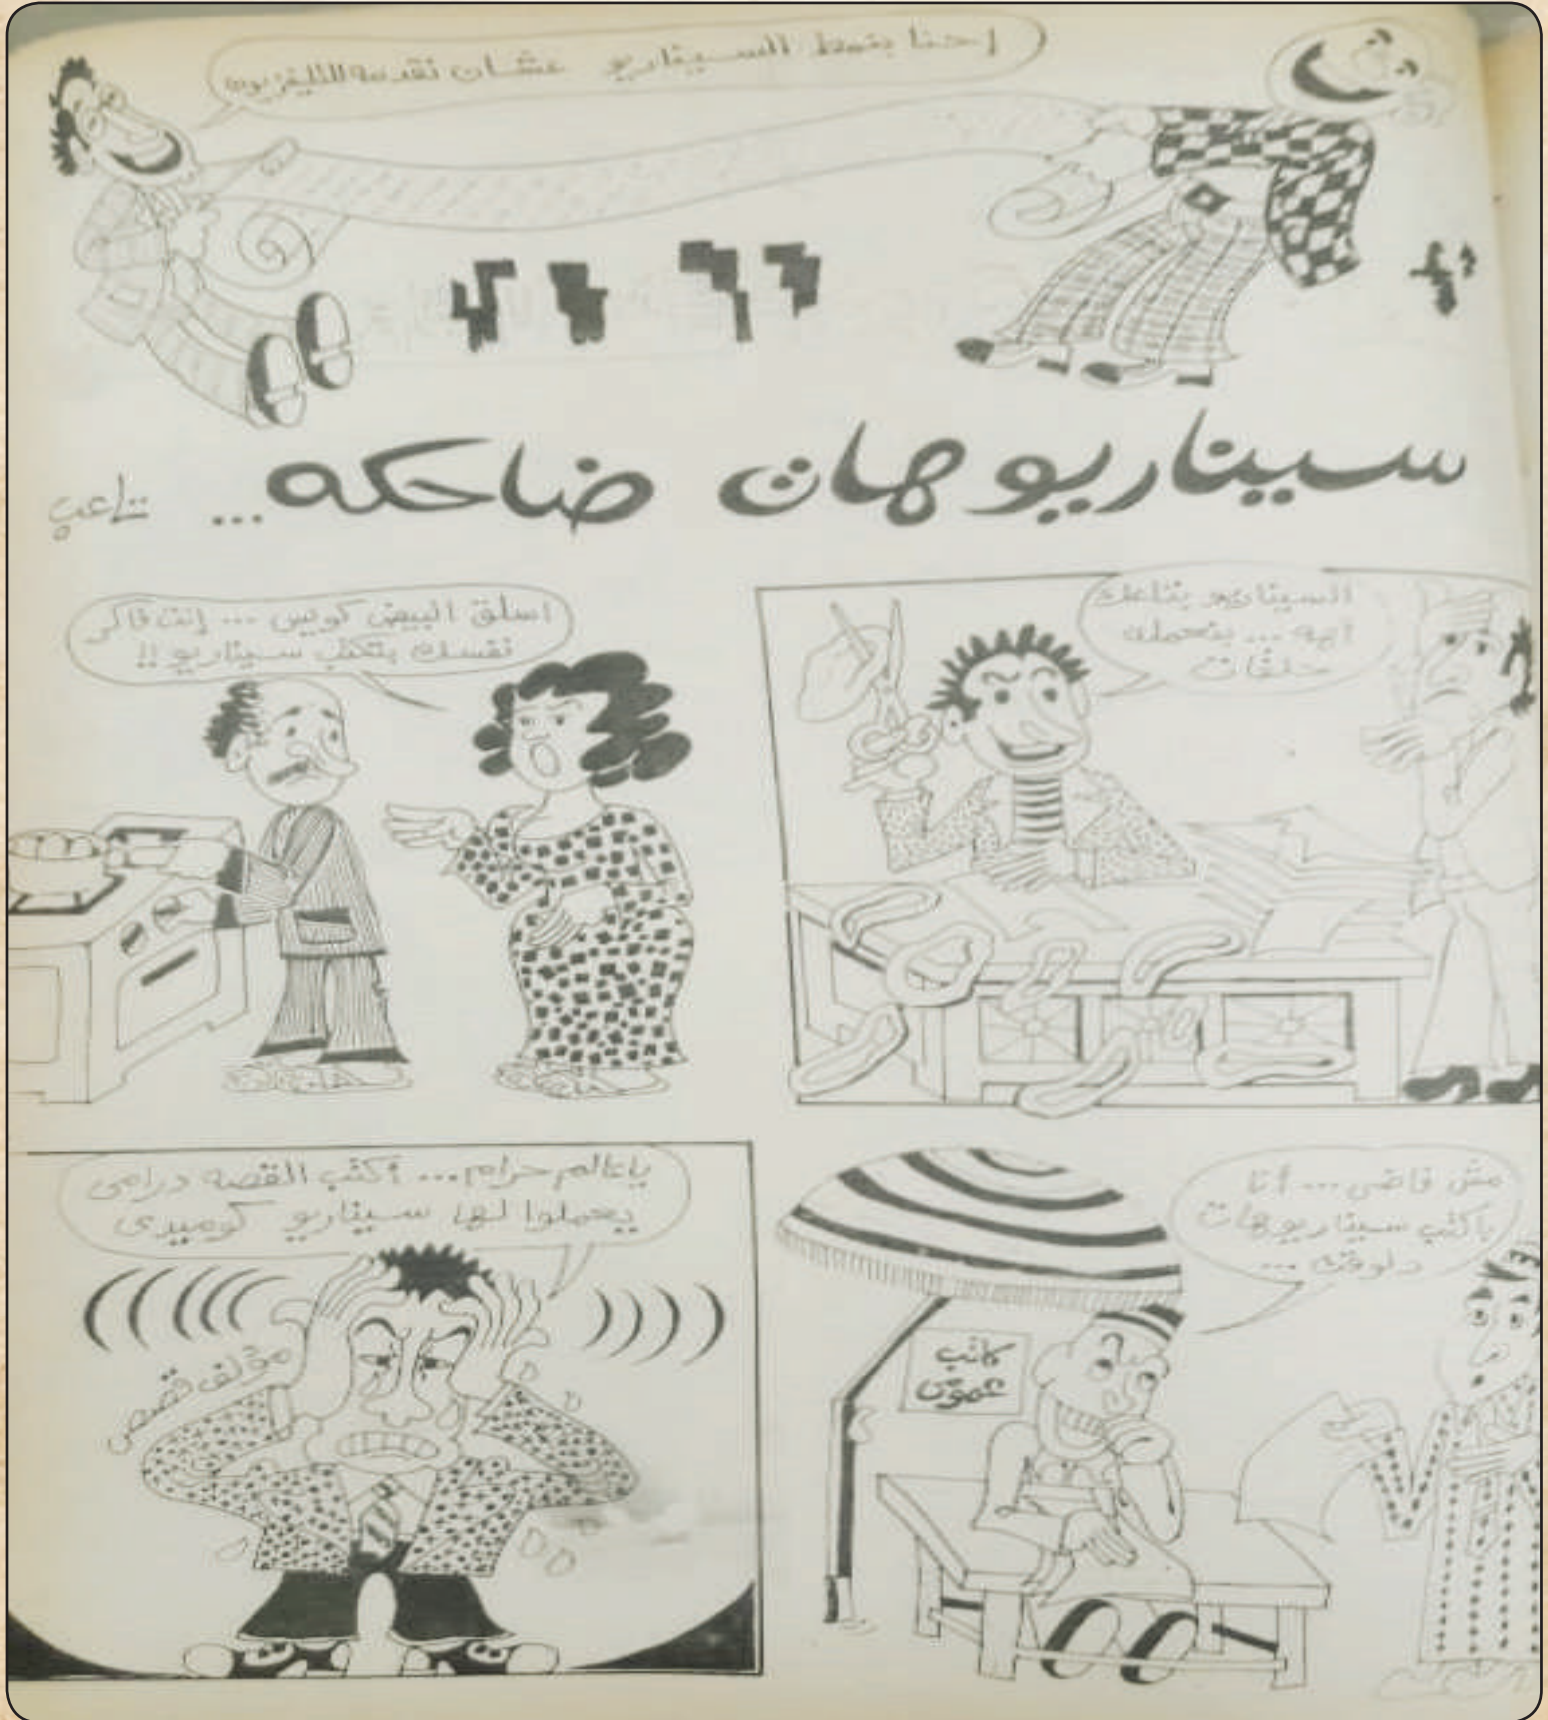 إحنا بنمط السيناريو عشان نقدمه للتليفزيون
سيناريوهات ضاحكه...
السيناريو بتاعك
ايه... بنعمله
حلقات
اسلق البيض كويس ... إنت فاكر
نفسك بتكتب سيناريو !!
مش فاضى ... أنا
باكتب سيناريوهات
دلوقت ...
كاتب
عمومى
ياعالم حرام... أكتب القصه درامى
يعملوا لها سيناريو كوميدى
مؤلف قصص